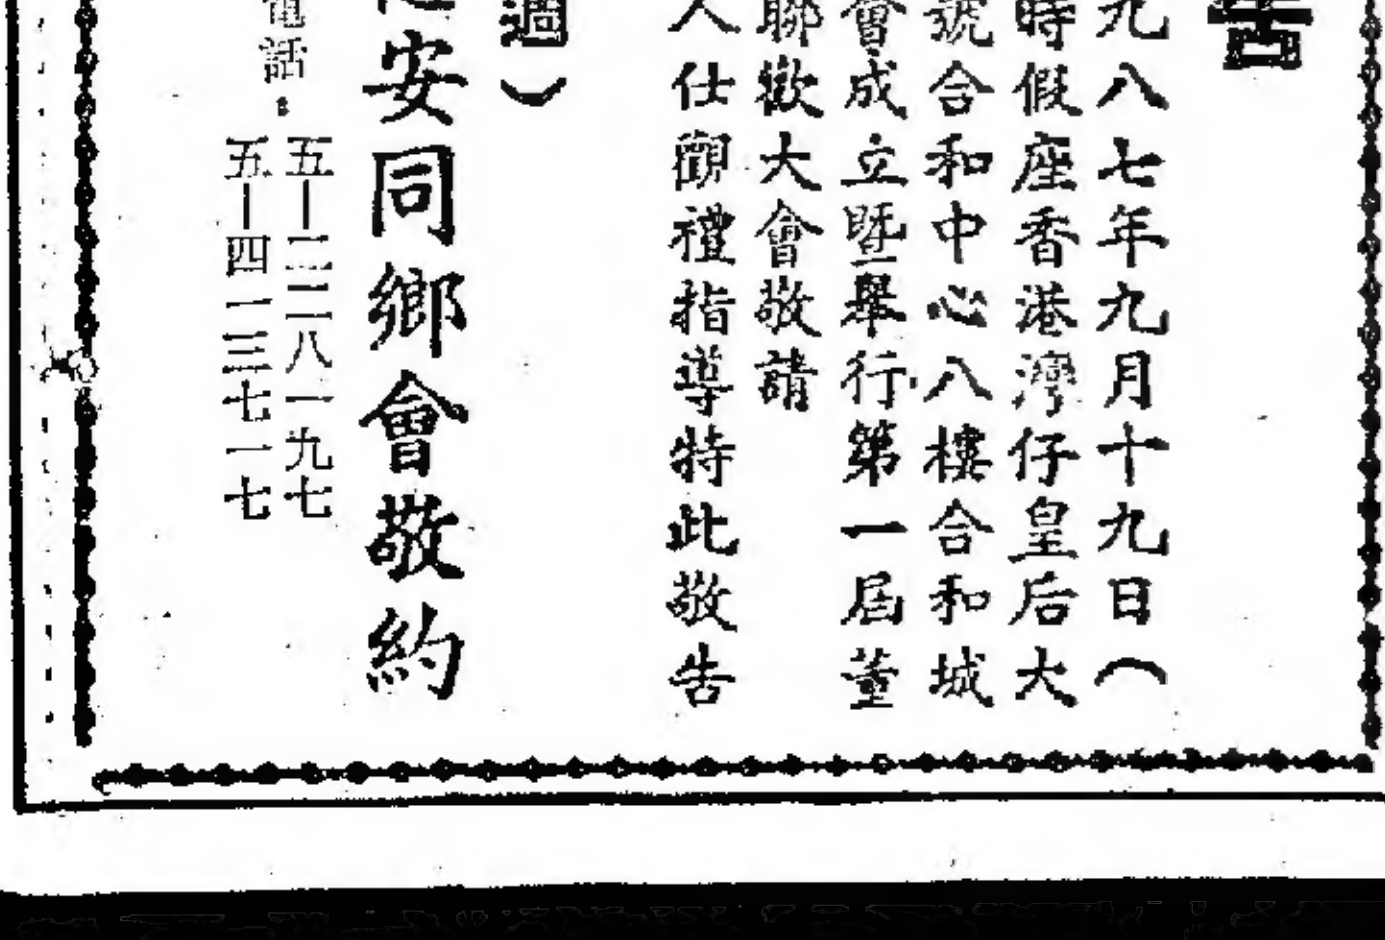 告
九八七年九月十九日（
時假座香港灣仔皇后大
號合和中心八樓合和城
會成立暨舉行第一屆董
聯歡大會敬請
人仕觀禮指導特此敬告
週）
安同鄉會敬約
電話：
五—二二八一九七
五—四一三七一七